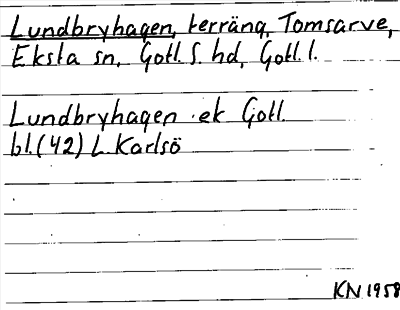 Lundbryhagen, terräng, Tomsarve,
Eksta sn, Gotl. S. hd, Gotl. l.
Lundbryhagen ek Gotl.
bl. (42) L. Karlsö
KN 1958